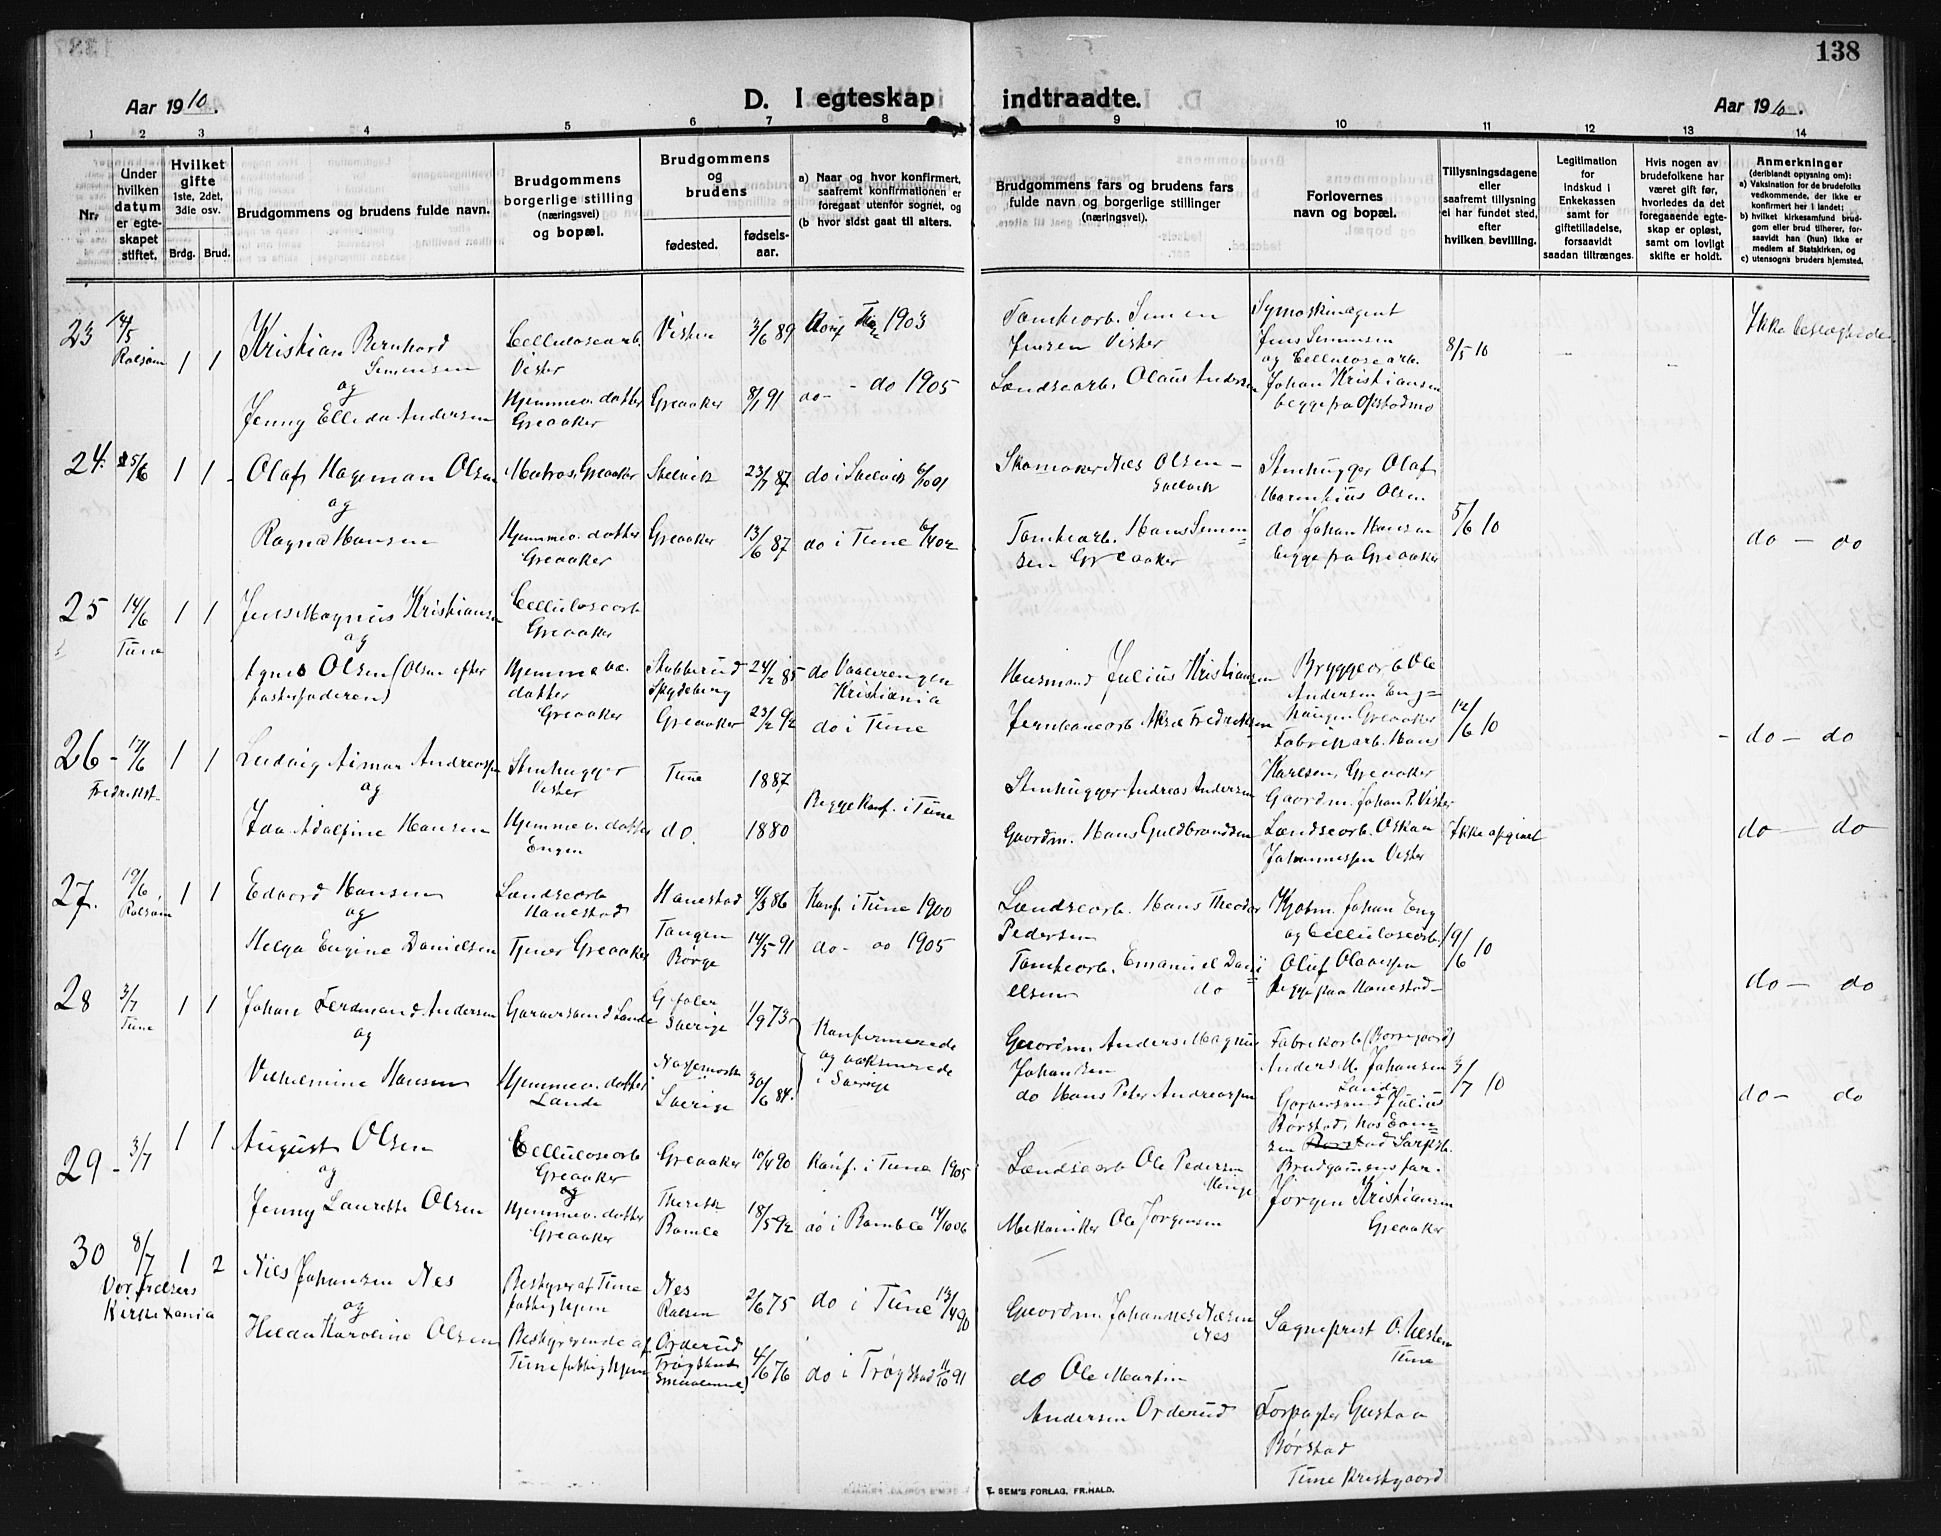 138
Aar 1910.
D. I egteskap indtraadte.
Aar 1910.
1 2 3 4 5 6 7 8 9 10 11 12 13 14
Nr.
Under hvilken datum er egteskapet stiftet.
Hvilket gifte 1ste, 2det, 3die osv.
Brdg. Brud.
Brudgommens og brudens fulde navn.
Brudgommens borgerlige stilling (næringsvei) og bopæl.
Brudgommens og brudens
fødested.
fødselsaar.
a) Naar og hvor konfirmert, saafremt konfirmationen er foregaat utenfor sognet, og
(b hvor sidst gaat til alters.
Brudgommens fars og brudens fars fulde navn og borgerlige stillinger (næringsvei).
Forlovernes navn og bopæl.
Tillysningsdagene eller saafremt tillysning ei har fundet sted, efter hvilken bevilling.
Legitimation for Indskud i Enkekassen samt for giftetilladelse, forsaavidt saadan tiltrænges.
Hvis nogen av brudefolkene har været gift før, hvorledes da det foregaaende egteskap er opløst, samt om lovligt skifte er holdt.
Anmerkninger (deriblandt opysning om):
a) Vaksination for de brudefolks vedkommende, der ikke er konfirmert her i landet;
b) hvilket kirkesamfund brudgom eller brud tilhører, forsaavidt han (hun) ikke er medlem af Statskirken, og
c) utensogns bruders hjemsted.
23 14/5 Rolsøen 1 1
Kristian Bernhard Simensen
og
Jenny Ellida Andersen
Cellulosearb. Vister
Hjemmev. datter Greaaker
Visten 3/6 89
Greaaker 8/1 91
Konf Tune 1903
do - do 1905
Tomtearb. Simen Jensen Vister
Landsearb. Olaus Andersen
Symaskinagent Jens Simensen og Cellulosearb. Johan Kristiansen begge fra Opstadmo
8/5 10
Ikke beslegtede.
24. 25/6 1 1
Olaf Hageman Olsen
og
Ragna Hansen
Matros, Greaaker
Hjemmev. datter Greaaker
Selvik 23/7 87
Greaaker 13/6 87
do i Selvik 6/10 01
do i Tune 6/4 02
Skomaker Nils Olsen - Selvik
Tomtearb. Hans Simensen Greaaker
Stenhugger Olaf Marentius Olsen
do Johan Hansen begge fra Greaaker
5/6 10
do - do
25 14/6 Tune 1 1
Jens Magnus Kristiansen
og
Agnes Olsen (Olsen efter fosterfaderen)
Cellulosearb Greaaker
Hjemmeværende datter Greaaker
Stubberud Spydeberg 24/2 85
Greaaker 23/2 92
do Vaalerengen Kristiania
do i Tune
Husmand Julius Kristiansen
Jernbanearb Aksel Fredriksen
Bryggearb Ole Andersen Enghaugen Greaaker
Fabrikarb. Hans Karlsen, Greaaker
12/6 10
- do - do
26 - 17/6 Fredrikst. 1 1
Ludvig Aimar Andreassen
og
Ida Adolfine Hansen
Stenhugger Vister
Hjemmev. datter Engen
Tune 1887
do. 1880
Begge Konf. i Tune
Stenhugger Andreas Andersen
Gaardm. Hans Guldbrandsen
Gaardm. Johan P. Vister
Landsearb. Oskar Johannessen Vister
Ikke opgivet
do - do
27. 19/6 Rolsøen 1 1
Edvard Hansen
og
Helga Eugine Danielsen
Landsearb Hanestad
Tjener Greaaker
Hanestad 4/3 86
Tangen Borge 14/5 91
Konf. i Tune 1900
do - do 1905
Landsearb. Hans Theodor Pedersen
Tomtearb. Emanuel Danielsen do
Kjøbm. Johan Eng og Cellulosearb. Oluf Olaussen begge fra Hanestad -
19/6 10
do - do
28 3/7 Tune 1 1
Johan Ferdinand Andersen
og
Vilhelmine Hansen
Garversvend Lande
Hjemmev. datter Lande
Sverige 1/9 73
Sverige 30/6 84.
Konfirmerede og vaksinerede i Sverige
Gaardm. Anders Magnus Johansen
do Hans Peter Andreassen
Fabrikarb (Borregaard) Anders M. Johansen Lande
Garversvend Julius Børstad, hos Sarpsb.
3/7 10
do - do
29 - 3/7 1 1
August Olsen
og
Jenny Laurette Olsen
Cellulosearb Greaaker
og
Hjemmev. datter Greaaker
Greaaker 10/4 90
Bamle 18/5 92
Konf. i Tune 1905
do i Bamble 14/10 06
Landsearb Ole Pedersen
Mekaniker Ole Jørgensen
Brudgomens far.
Jørgen Kristiansen Greaaker
30 8/7 1 2
Vor Frelsers Kirke Xania
Nils Johansen Nes
og
Hilda Karoline Olsen
Bestyrer af Tune fattighjem
Bestyrerinde af Tune fattighjem
Nes Rolsøen 2/6 75
Orderud Trøgstad Smaalenene) 4/6 76
do i Tune 13/4 90
do i Trøgstad 11/10 91
Gaardm. Johannes Nilsen Nes
do Ole Martin Andersen Orderud
Sogneprest O. Nesten Tune
Forpagter Gustav Børstad
Tune Prestgaard
E. SEM'S FORLAG, FR.HALD.